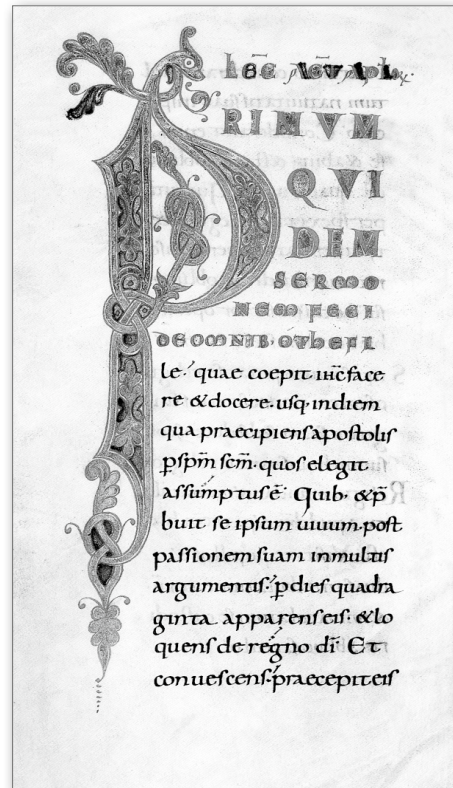 LEC̄
PRIMVM
QVI
DEM
SERMO
NEM FECI
DE OMNIB· O THEFI
le· quae coepit· ihc̄ face
re & docere· usq· indiem
qua praecipiens apostolis
p̱ sp̄m sc̄m· quos elegit
assumptus ē· Quib· & p̄
buit se ipsum uiuum· post
passionem suam inmultis
argumentis· p̱ dies quadra
ginta apparens eis· & lo
quens de regno dī· Et
conuescens· praecepit eis